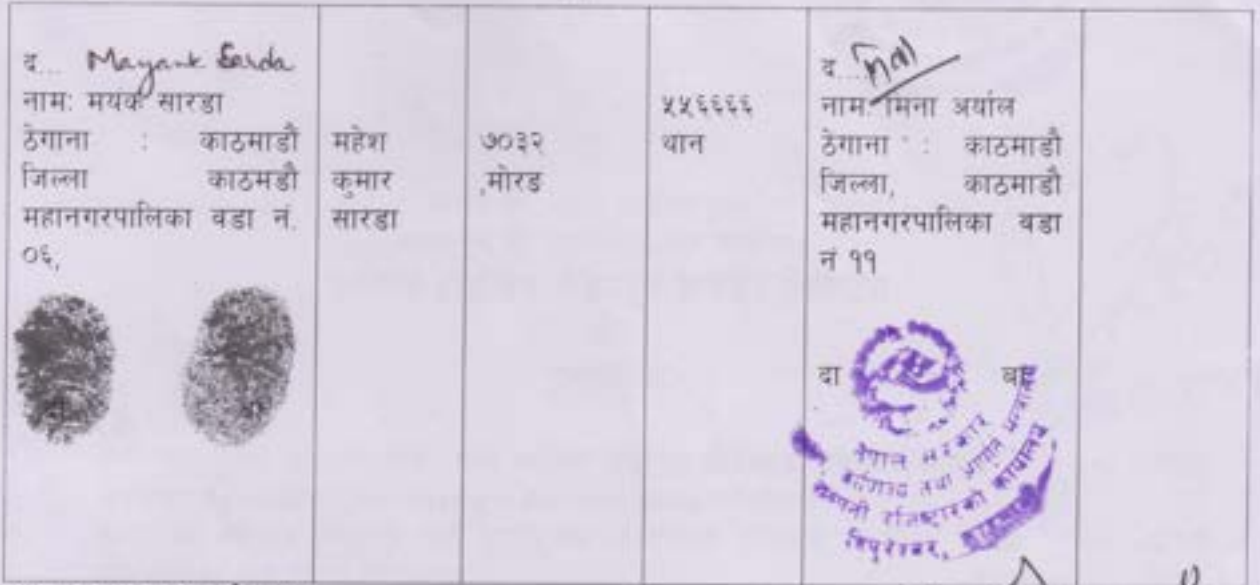 द... Mayank Sarda
नाम: मयंक सारडा
ठेगाना : काठमाडौ
जिल्ला काठमडौ
महानगरपालिका वडा नं.
०६,
महेश
कुमार
सारडा
७०३२
,मोरङ
५५६६६६
थान
द...
नाम: मिना अर्याल
ठेगाना : काठमाडौ
जिल्ला, काठमाडौ
महानगरपालिका वडा
नं ११
दा बा
नेपाल सरकार
तथा आपूर्ति
कम्पनी रजिष्ट्रारको कार्यालय
त्रिपुरेश्वर,